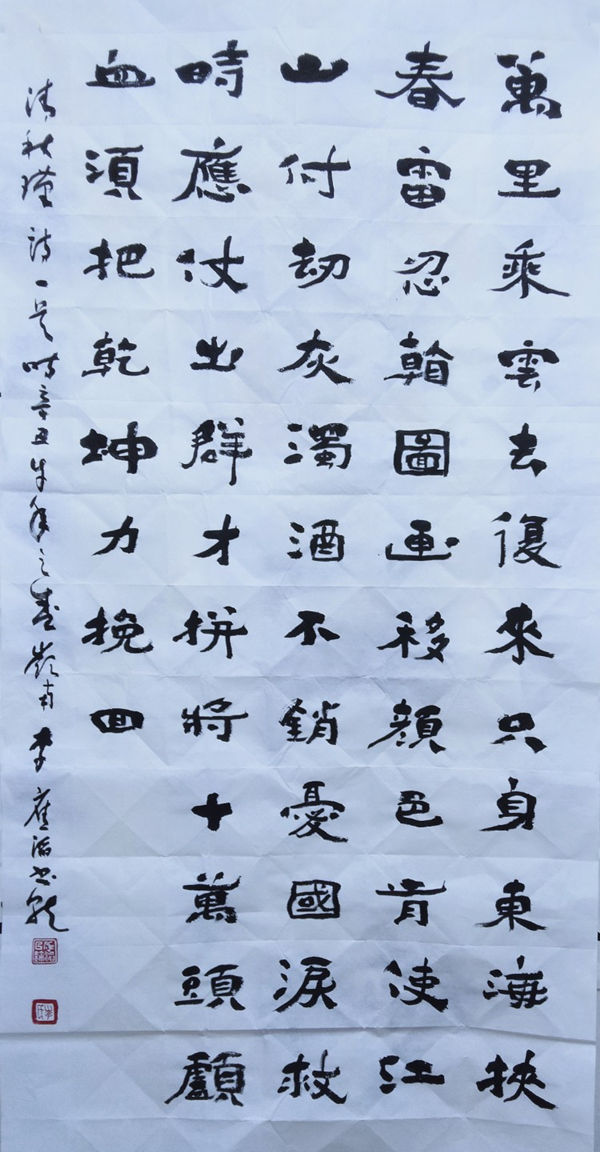 萬里乘雲去復來只身東海挾
春雷忍看圖画移顔色肯使江
山付劫灰濁酒不銷憂國淚救
時應仗出群才拼將十萬頭顱
血須把乾坤力挽回
清秋瑾詩一首時辛丑牛年之嶺南李應書